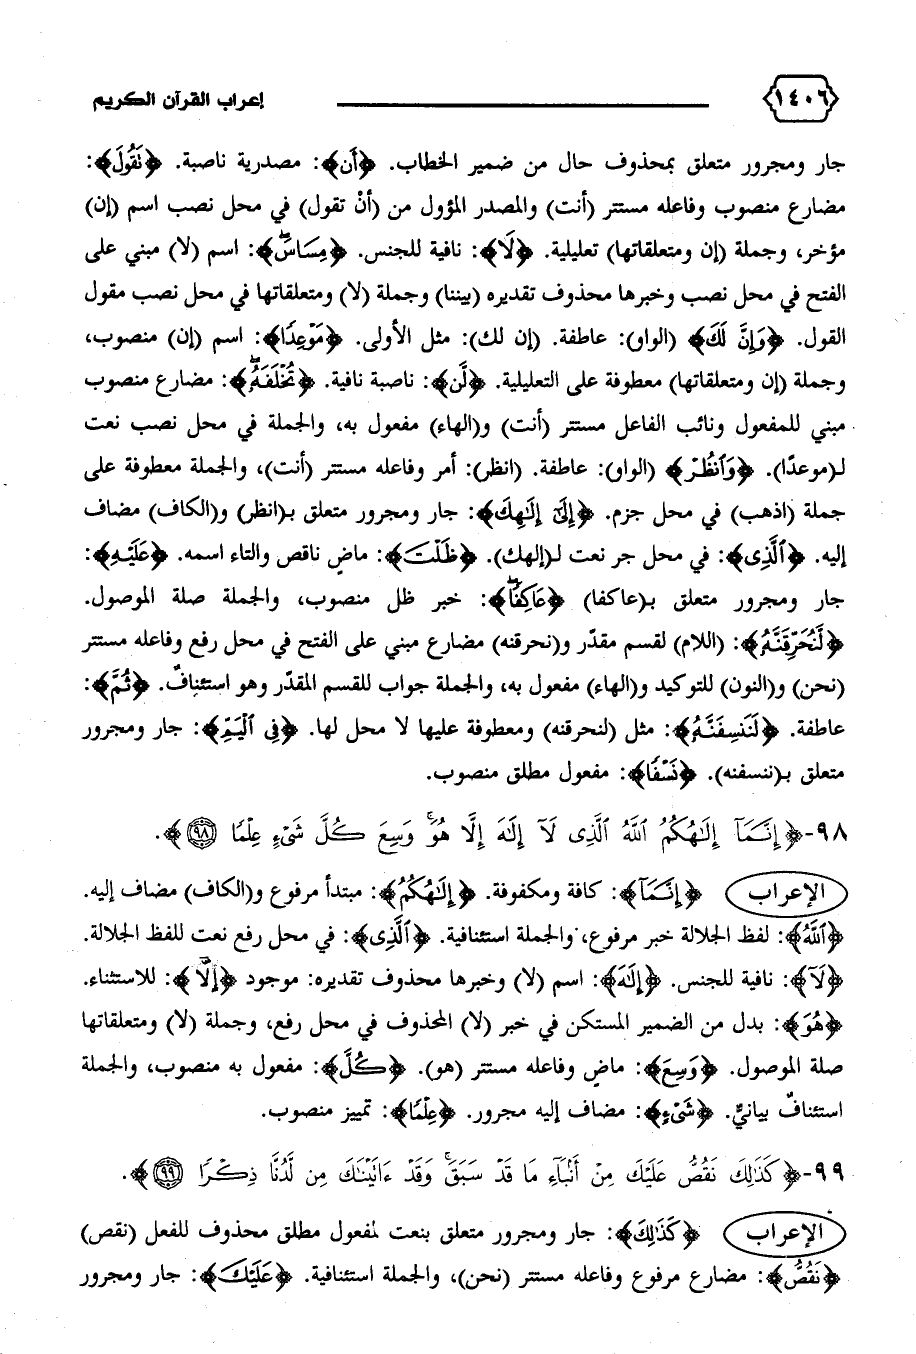 ١٤٠٦ إعراب القرآن الكريم
جار ومجرور متعلق بمحذوف حال من ضمير الخطاب. ﴿أَن﴾: مصدرية ناصبة. ﴿تَقُولَ﴾:
مضارع منصوب وفاعله مستتر (أنت) والمصدر المؤول من (أنْ تقول) في محل نصب اسم (إن)
مؤخر، وجملة (إن ومتعلقاتها) تعليلية. ﴿لَا﴾: نافية للجنس. ﴿مِسَاسَۖ﴾: اسم (لا) مبني على
الفتح في محل نصب وخبرها محذوف تقديره (بيننا) وجملة (لا) ومتعلقاتها في محل نصب مقول
القول. ﴿وَإِنَّ لَكَ﴾ (الواو): عاطفة. (إن لك): مثل الأولى. ﴿مَوْعِدًا﴾: اسم (إن) منصوب،
وجملة (إن ومتعلقاتها) معطوفة على التعليلية. ﴿لَّن﴾: ناصبة نافية. ﴿تُخْلَفَهُۥۖ﴾: مضارع منصوب
مبني للمفعول ونائب الفاعل مستتر (أنت) و(الهاء) مفعول به، والجملة في محل نصب نعت
لـ(موعدًا). ﴿وَٱنظُرْ﴾ (الواو): عاطفة. (انظر): أمر وفاعله مستتر (أنت)، والجملة معطوفة على
جملة (اذهب) في محل جزم. ﴿إِلَىٰٓ إِلَٰهِكَ﴾: جار ومجرور متعلق بـ(انظر) و(الكاف) مضاف
إليه. ﴿ٱلَّذِى﴾: في محل جر نعت لـ(إلهك). ﴿ظَلْتَ﴾: ماضٍ ناقص والتاء اسمه. ﴿عَلَيْهِ﴾:
جار ومجرور متعلق بـ(عاكفا) ﴿عَاكِفًاۖ﴾: خبر ظل منصوب، والجملة صلة الموصول.
﴿لَّنُحَرِّقَنَّهُۥ﴾: (اللام) لقسم مقدّر و(نحرقنه) مضارع مبني على الفتح في محل رفع وفاعله مستتر
(نحن) و(النون) للتوكيد و(الهاء) مفعول به، والجملة جواب للقسم المقدّر وهو استئنافٌ. ﴿ثُمَّ﴾:
عاطفة. ﴿لَنَنسِفَنَّهُۥ﴾: مثل (لنحرقنه) ومعطوفة عليها لا محل لها. ﴿فِى ٱلْيَمِّ﴾: جار ومجرور
متعلق بـ(ننسفنه). ﴿نَسْفًا﴾: مفعول مطلق منصوب.
٩٨-﴿إِنَّمَآ إِلَٰهُكُمُ ٱللَّهُ ٱلَّذِى لَآ إِلَٰهَ إِلَّا هُوَۚ وَسِعَ كُلَّ شَىْءٍ عِلْمًا ٩٨﴾.
الإعراب ﴿إِنَّمَآ﴾: كافة ومكفوفة. ﴿إِلَٰهُكُمُ﴾: مبتدأ مرفوع و(الكاف) مضاف إليه.
﴿ٱللَّهُ﴾: لفظ الجلالة خبر مرفوع، والجملة استئنافية. ﴿ٱلَّذِى﴾: في محل رفع نعت للفظ الجلالة.
﴿لَآ﴾: نافية للجنس. ﴿إِلَٰهَ﴾: اسم (لا) وخبرها محذوف تقديره: موجود ﴿إِلَّا﴾: للاستثناء.
﴿هُوَ﴾: بدل من الضمير المستكن في خبر (لا) المحذوف في محل رفع، وجملة (لا) ومتعلقاتها
صلة الموصول. ﴿وَسِعَ﴾: ماضٍ وفاعله مستتر (هو). ﴿كُلَّ﴾: مفعول به منصوب، والجملة
استئنافٌ بيانيٌّ. ﴿شَىْءٍ﴾: مضاف إليه مجرور. ﴿عِلْمًا﴾: تمييز منصوب.
٩٩-﴿كَذَٰلِكَ نَقُصُّ عَلَيْكَ مِنْ أَنۢبَآءِ مَا قَدْ سَبَقَۚ وَقَدْ ءَاتَيْنَٰكَ مِن لَّدُنَّا ذِكْرًا ٩٩﴾.
الإعراب ﴿كَذَٰلِكَ﴾: جار ومجرور متعلق بنعت لمفعول مطلق محذوف للفعل (نقص)
﴿نَقُصُّ﴾: مضارع مرفوع وفاعله مستتر (نحن)، والجملة استئنافية. ﴿عَلَيْكَ﴾: جار ومجرور